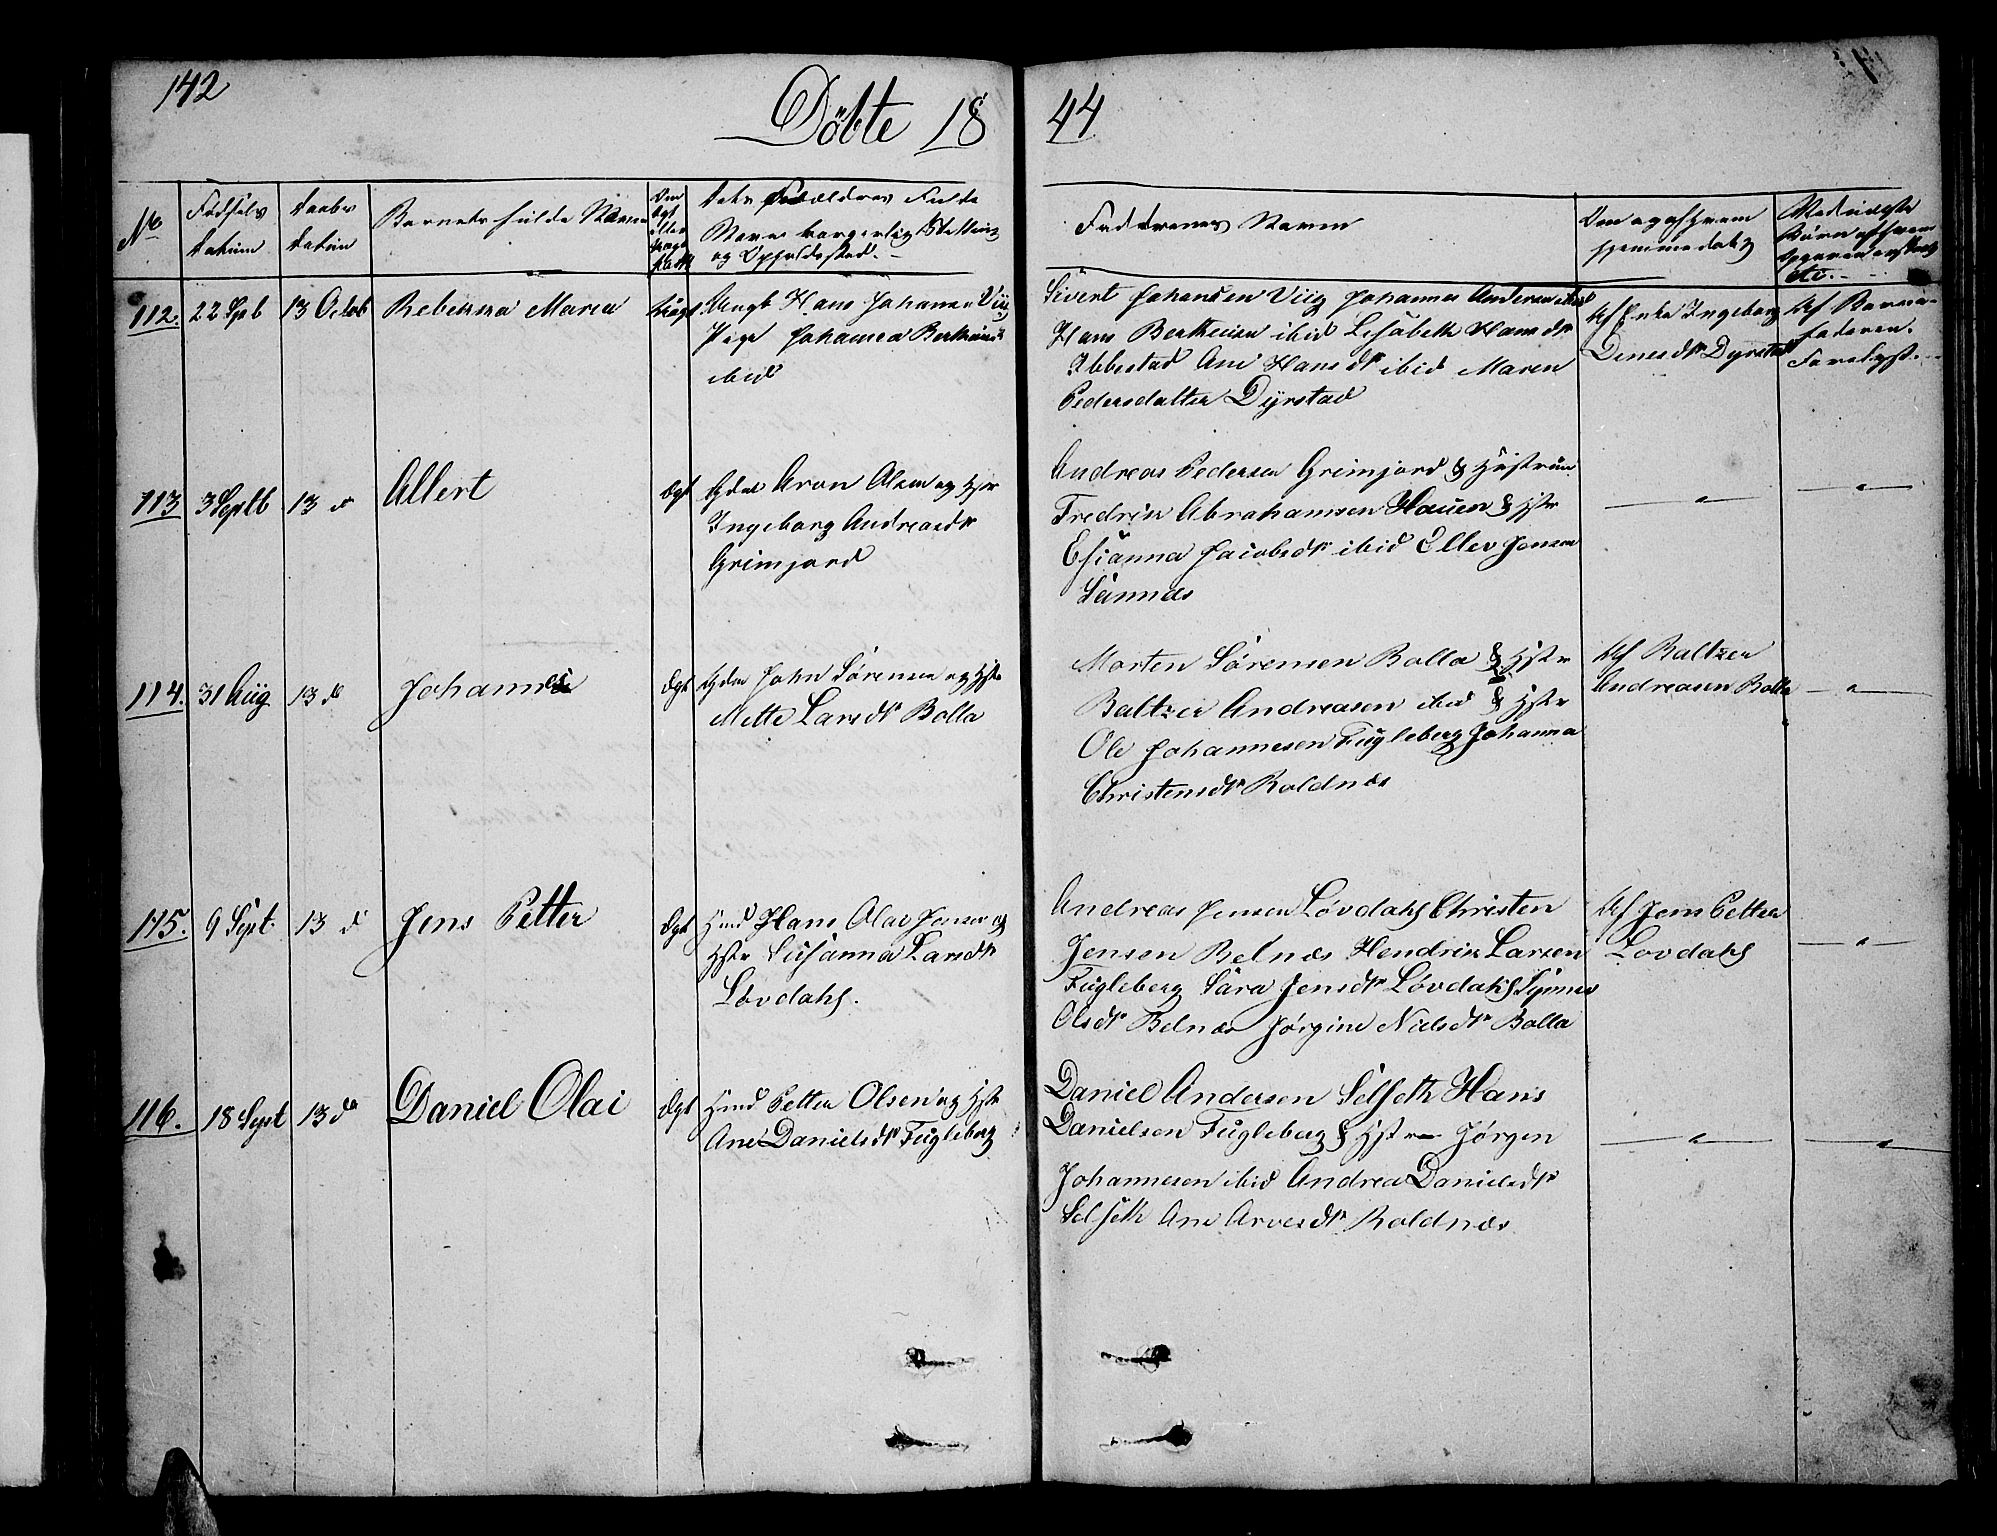 142
Döbte 18 44
No
Fødsels Datum
Daabs Datum
Barnets fulde Navn
Om Ægt eller Uægte født
Dets Forældres Fulde
Navne borgerlig Stilling
og Opholdsted.
Faddernes Navne
Om og af hvem hjemmedøbt
112. 22 Sptb 13 Octob Rebekka Maria Uægt Ungk Hans Johansen Viig
Pige Johanna Bertheusd
ibid
Sivert Johansen Viig Johannes Andersen ibid
Hans Bertheusen ibid Lisabeth Hansdtr
Ibbestad Ane Hansdtr ibid Maren
Pedersdatter Dyrstad
Af Enke Ingeborg
Dinesdtr Dyrstad
Af Barne-
faderen
113 3 Septb 13 d Allert Ægt Gdm Aron Olsen og Hstr
Ingeborg Andreasdtr
Grimjord
Andreas Pedersen Grimjord & Hustrue
Fredrik Abrahamsen Hauen & Hstr
Esianna Jacobsdtr ibid Eller Jensen
Sannæs
114. 31 Aug 13 d Johannes Ægt Gdm John Sørensen og Hstr
Mette Larsdtr Bolla
Morten Sørensen Bolla & Hstr
Baltzer Andreasen ibid & Hstr
Ole Johannesen Fugleberg Johanna
Christensdtr Roldnæs
Af Baltzer
Andreasen Bolla
115. 9 Sept. 13 d Jens Petter Ægt Hmd Hans Olai Jensen og
Hstr Susanna Larsdtr
Løvdahl.
Andreas Jensen Løvdahl Christen
Jensen Belnæs Hendrik Larsen
Fugleberg Sara Jensdtr Løvdahl
Olsdtr Belnæs Jørgine Nielsdtr Bolla
Af Jens Petter
Lovdahl
116. 18 Sept 13 d Daniel Olai Ægt Hmd Petter Olsen og Hstr
Ane Danielsdtr Fugleberg
Daniel Andersen Selseth Hans
Danielsen Fugleberg & Hstr Jørgen
Johannesen ibid Andrea Danielsdtr
Selseth Ane Arnesdtr Roldnæs